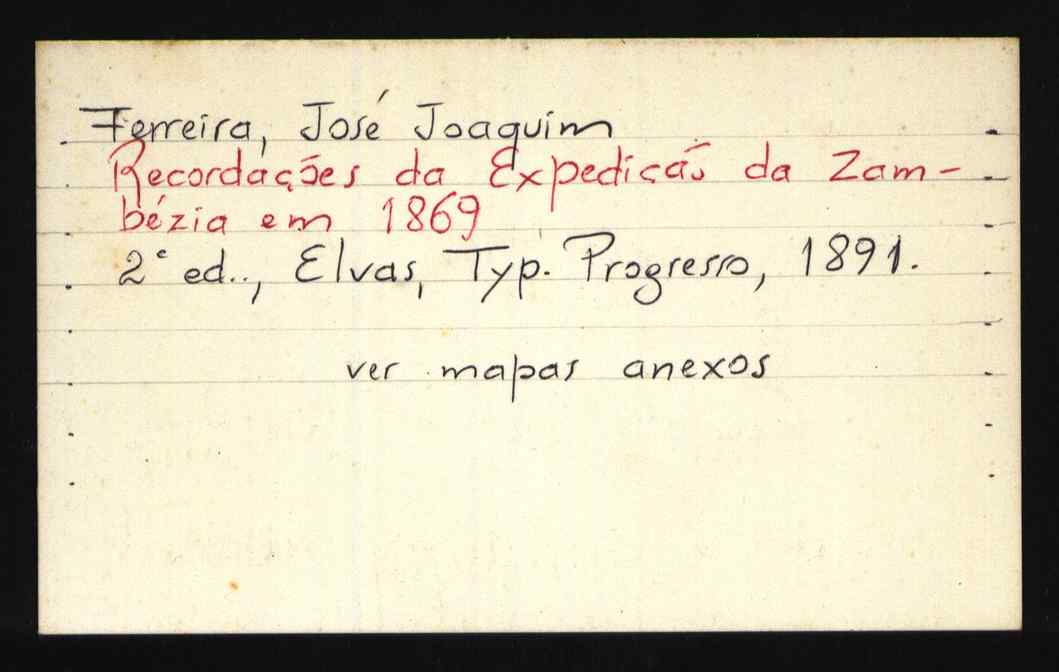 Ferreira, José Joaquim
Recordações da Expedição da Zam-
bézia em 1869
2ª ed.., Elvas, Typ. Progresso, 1891.
ver mapas anexos